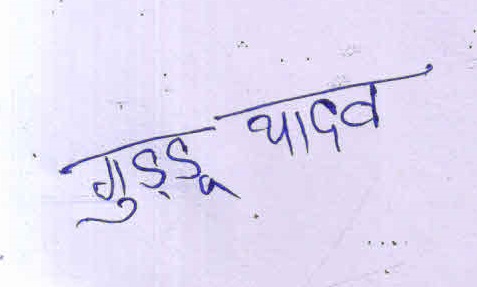 गुड्डू यादव